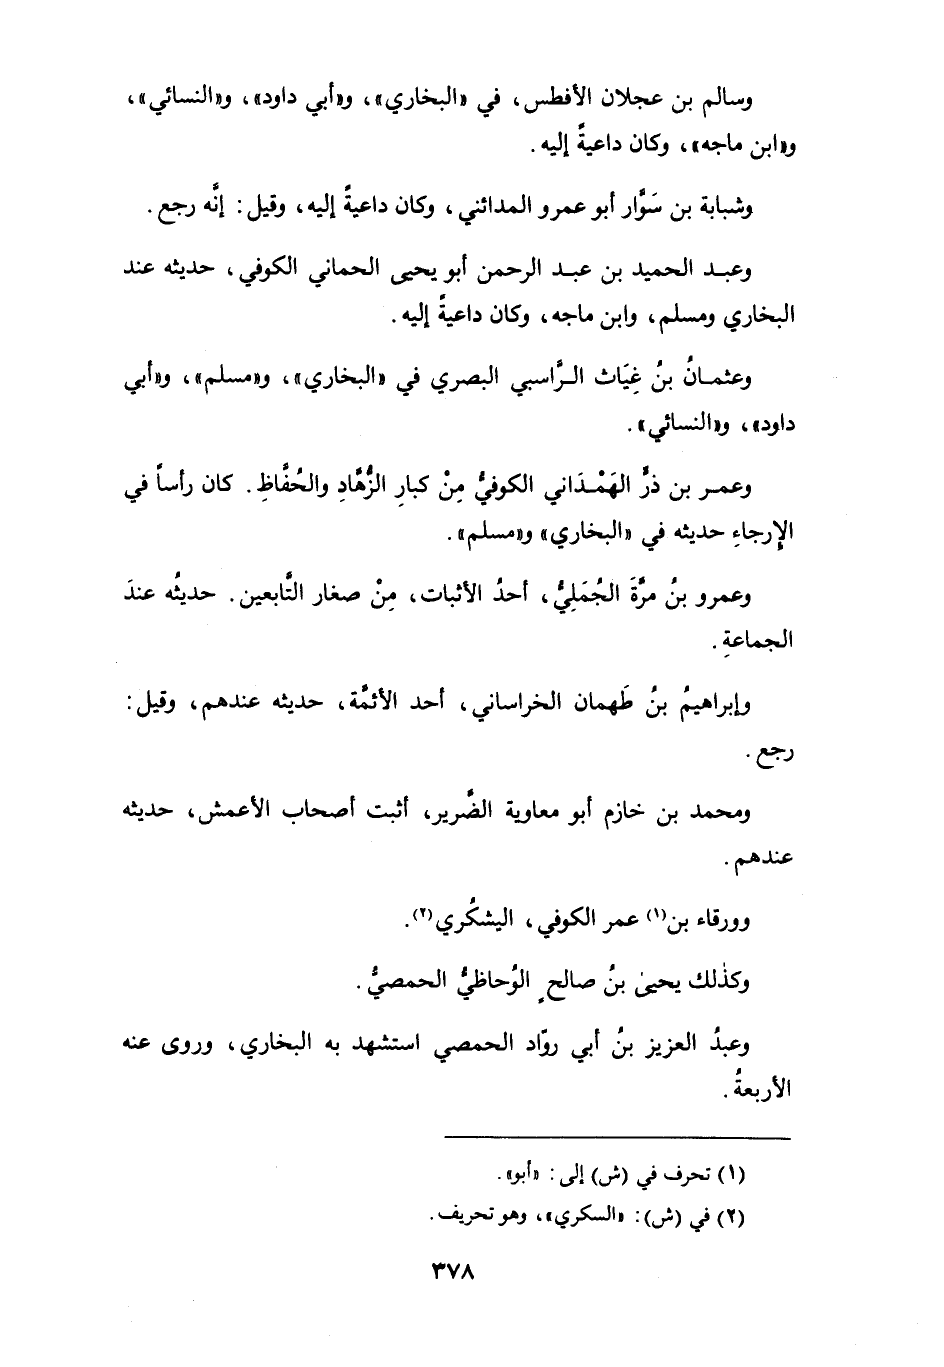 وسالم بن عجلان الأفطس، في «البخاري»، و«أبي داود»، و«النسائي»،
و«ابن ماجه»، وكان داعيةً إليه.
وشبابة بن سَوَّار أبو عمرو المدائني، وكان داعيةً إليه، وقيل: إنَّه رجع.
وعبد الحميد بن عبد الرحمن أبو يحيى الحماني الكوفي، حديثه عند
البخاري ومسلم، وابن ماجه، وكان داعيةً إليه.
وعثمانُ بنُ غِيَاث الرَّاسبي البصري في «البخاري»، و«مسلم»، و«أبي
داود»، و«النسائي».
وعمر بن ذرٍّ الهَمْدَاني الكوفيُّ مِنْ كبارِ الزُّهَّادِ والحُفَّاظِ. كان رأساً في
الإرجاءِ حديثه في «البخاري» و«مسلم».
وعمرو بنُ مرَّةَ الجُمَلِيُّ، أحدُ الأثبات، مِنْ صغار التَّابعين. حديثُه عندَ
الجماعةِ.
وإبراهيمُ بنُ طَهمان الخراساني، أحد الأئمَّة، حديثه عندهم، وقيل:
رجع.
ومحمد بن خازم أبو معاوية الضَّرير، أثبت أصحاب الأعمش، حديثه
عندهم.
وورقاء بن(١) عمر الكوفي، اليشكُري(٢).
وكذٰلك يحيىٰ بنُ صالحٍ الوُحاظيُّ الحمصيُّ.
وعبدُ العزيز بنُ أبي روّاد الحمصي استشهد به البخاري، وروى عنه
الأربعةُ.
(١) تحرف في (ش) إلى: «أبو».
(٢) في (ش): «السكري»، وهو تحريف.
٣٧٨